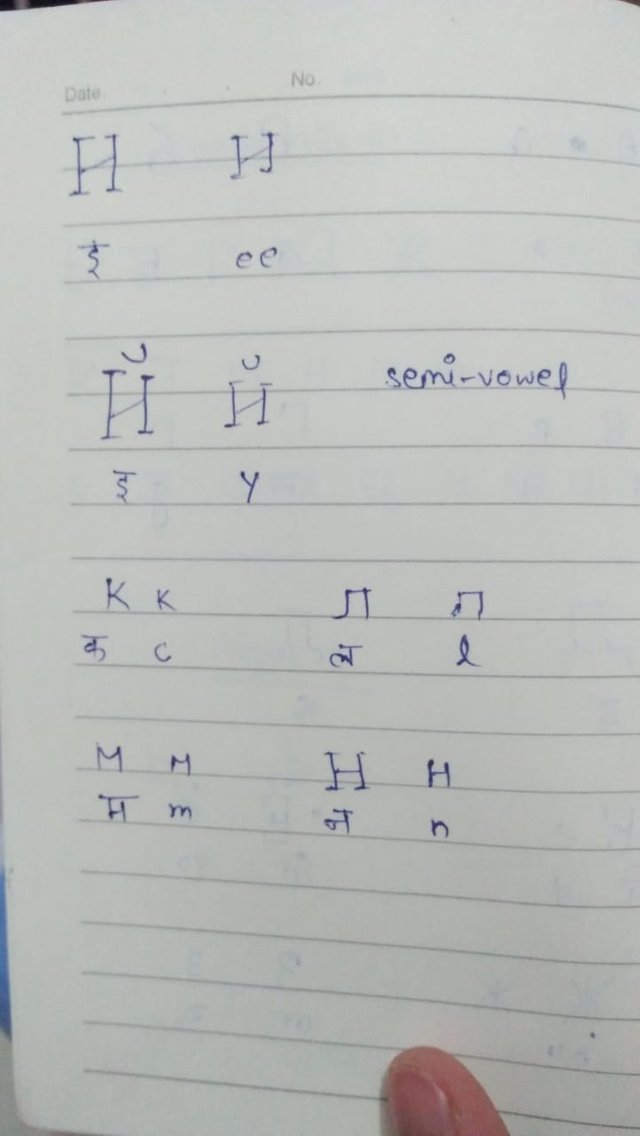 Date No
И и
ई ee
Й й semi-vowel
इ y
К к Л л
क c ल l
М м Н н
म m न n